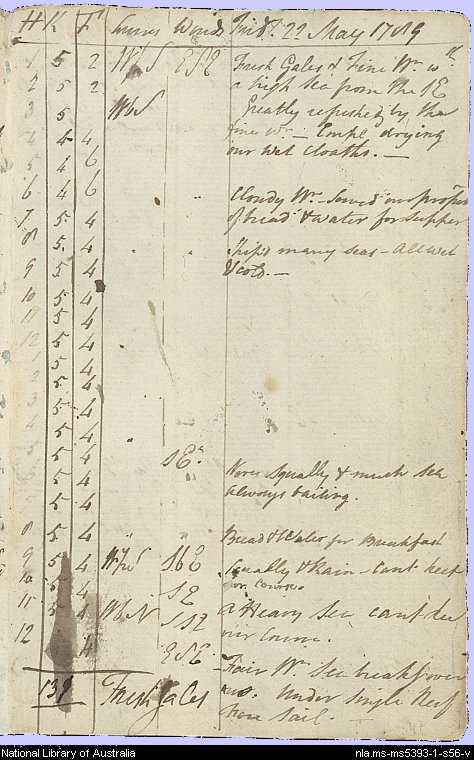 H K F Courses Winds Frid. 22 May 1789
1 5 2 WbS ESE Fresh Gales & Fine Wr. wth.
2 5 2 a high sea from the SE
3 5 WbS Greatly refreshed by the
4 4 4 fine Wr. — Empl. drying
5 4 6 our wet cloaths. —
6 4 6 " Cloudy Wr. Served our propor
7 5 4 of bread & water for supper
8 5 4
Ship'd many seas — All wet
9 5 4 & cold. —
10 5 4
11 5 4
12 5 4
1 5 4
2 5 4
3 5 4
4 5 4
5 5 4 SE.
6 5 4 squally & much sea
5 4 always bailing.
8 5 4 Bread & Water for Breakfast
9 5 4 SbE Squally & Rain — Cant keep
10 5 4 SE our course.
11 5 4 WbN SSE A Heavy Sea cant
12 4 our course.
ESE Fair Wr. Sea breaks over
139 Fresh Gales us. Under single Reef
Fore Sail.
National Library of Australia
nla.ms-ms5393-1-s56-v